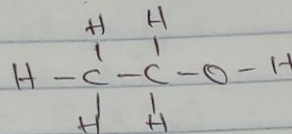 H H
H - C - C - O - H
H H